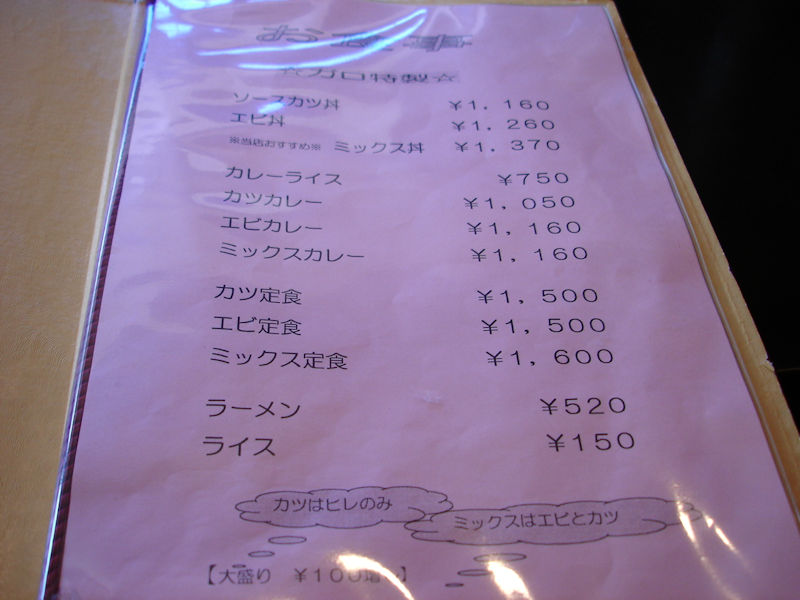 お食事
☆ガロ特製☆
ソースカツ丼 ￥1，160
エビ丼 ￥1，260
※当店おすすめ※ ミックス丼 ￥1，370
カレーライス ￥750
カツカレー ￥1，050
エビカレー ￥1，160
ミックスカレー ￥1，160
カツ定食 ￥1，500
エビ定食 ￥1，500
ミックス定食 ￥1，600
ラーメン ￥520
ライス ￥150
カツはヒレのみ
ミックスはエビとカツ
【大盛り ￥100増】